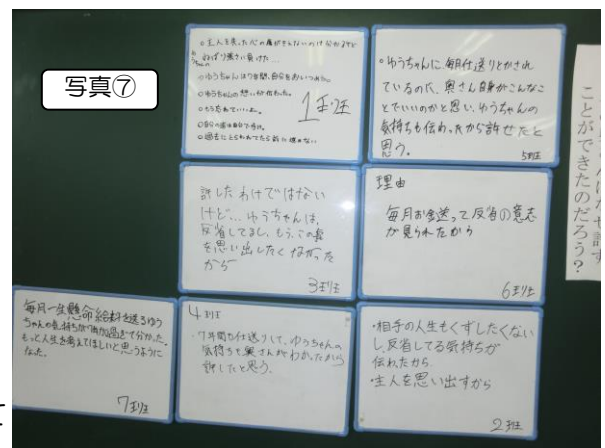 写真⑦
○主人を失った心の傷がきえないのは分かるけど
やっぱり
○ゆうちゃんは7年間、自分をおいつめた。
○ゆうちゃんの想いが伝わった。
○もう忘れていいよ。
○過去にとらわれてたら前に進めない
1王王
・ゆうちゃんに、毎月仕送りとかされ
ているので、奥さん自身がこんなこ
とでいいのかと思い、ゆうちゃんの
気持ちも伝わったから許せたと
思う。
5班
許したわけではない
けど…ゆうちゃんは、
反省してるし、もう、この件
を思い出したくなかった
から
3班
理由
毎月お金送って反省の意志
が見られたから
6班
毎月一生懸命給料を送るゆう
ちゃんの気持ちが7年が過ぎて分かった。
もっと人生を考えてほしいと思うように
なった。
7班
4班
・7年間も仕送りして、ゆうちゃんの
気持ちを奥さんがわかったから
許したと思う。
・相手の人生もくずしたくない
し、反省してる気持ちが
伝わったから
・主人を思い出すから
2班
許す
ことができたのだろう?